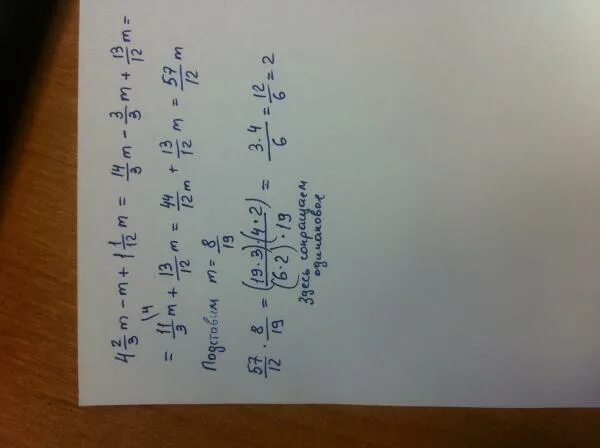 4 2/3 m − m + 1 1/12 m = 14/3 m − 3/3 m + 13/12 m =
= 11/3 \4 m + 13/12 m = 44/12 m + 13/12 m = 57/12 m
Подставим m = 8/19
57/12 · 8/19 = (19·3)·(4·2)/(6·2)·19 = 3·4/6 = 12/6 = 2
Здесь сокращаем
одинаковое